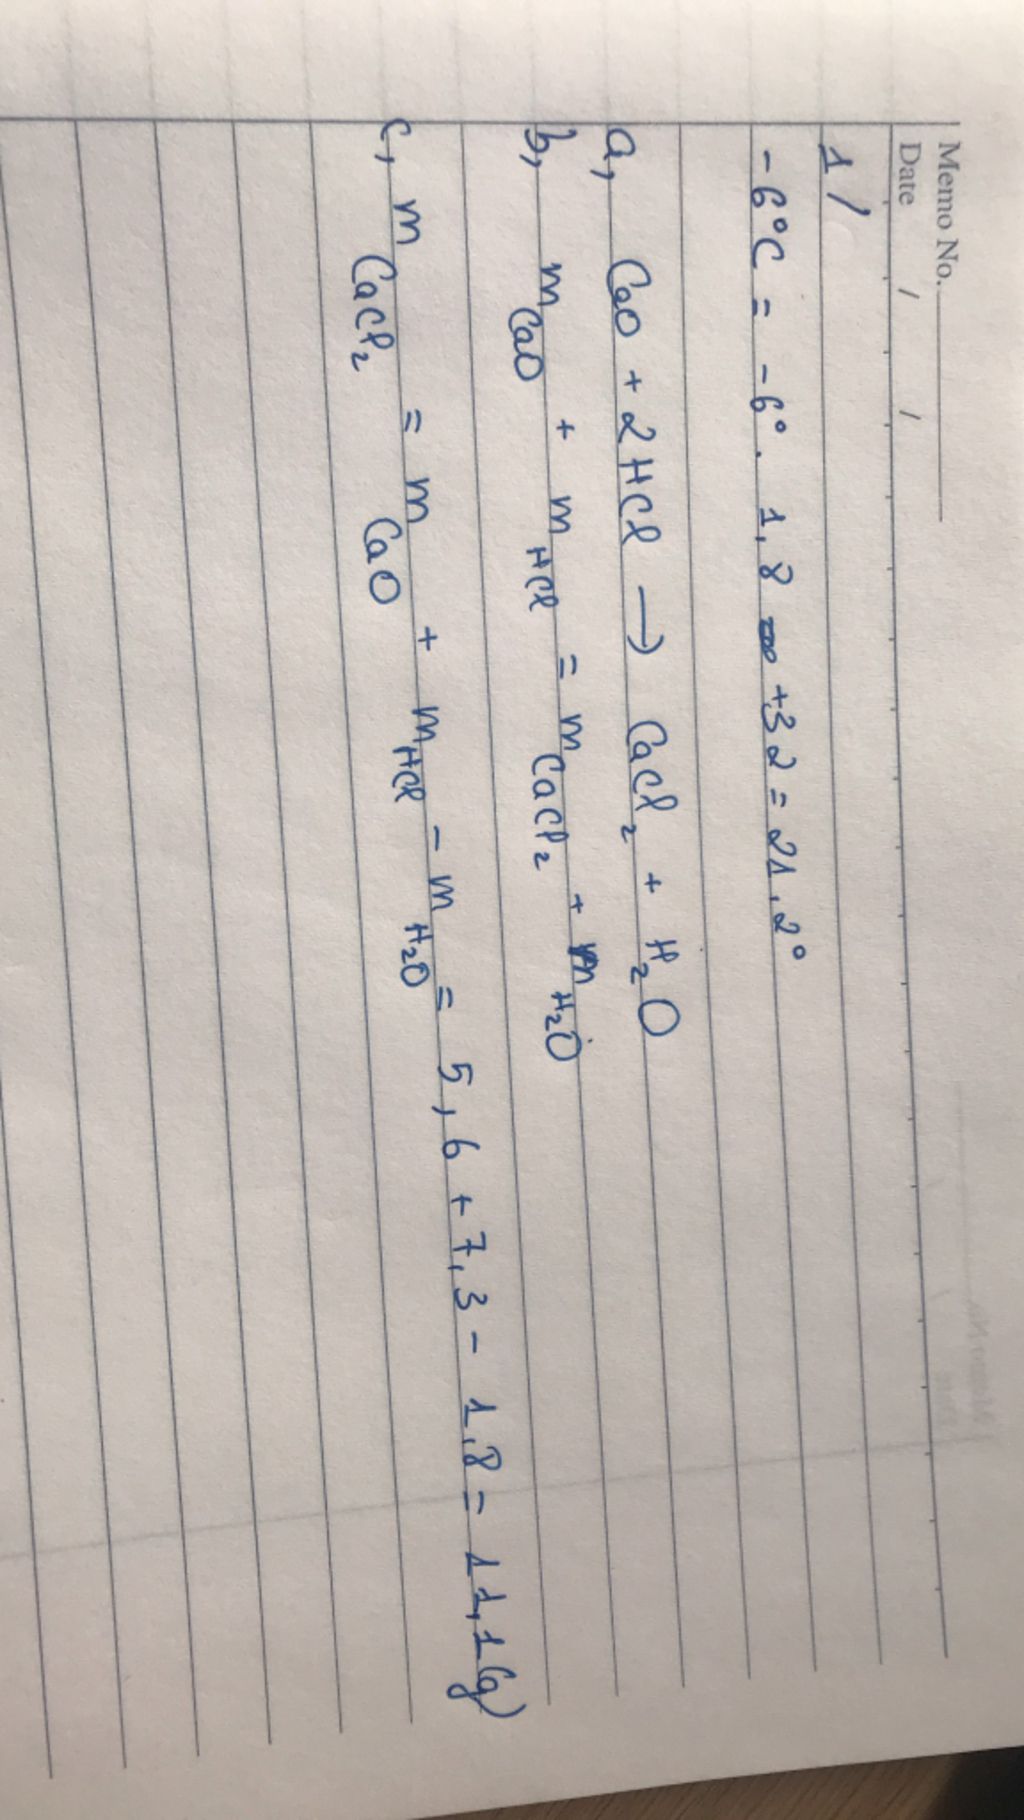 Memo No.
Date / /
1/
-6°C = -6° . 1,8 +32 = 21,2°
a, CaO + 2HCl → CaCl₂ + H₂O
b, m CaO + m HCl = m CaCl₂ + m H₂O
c, m CaCl₂ = m CaO + m HCl - m H₂O = 5,6 + 7,3 - 1,8 = 11,1(g)